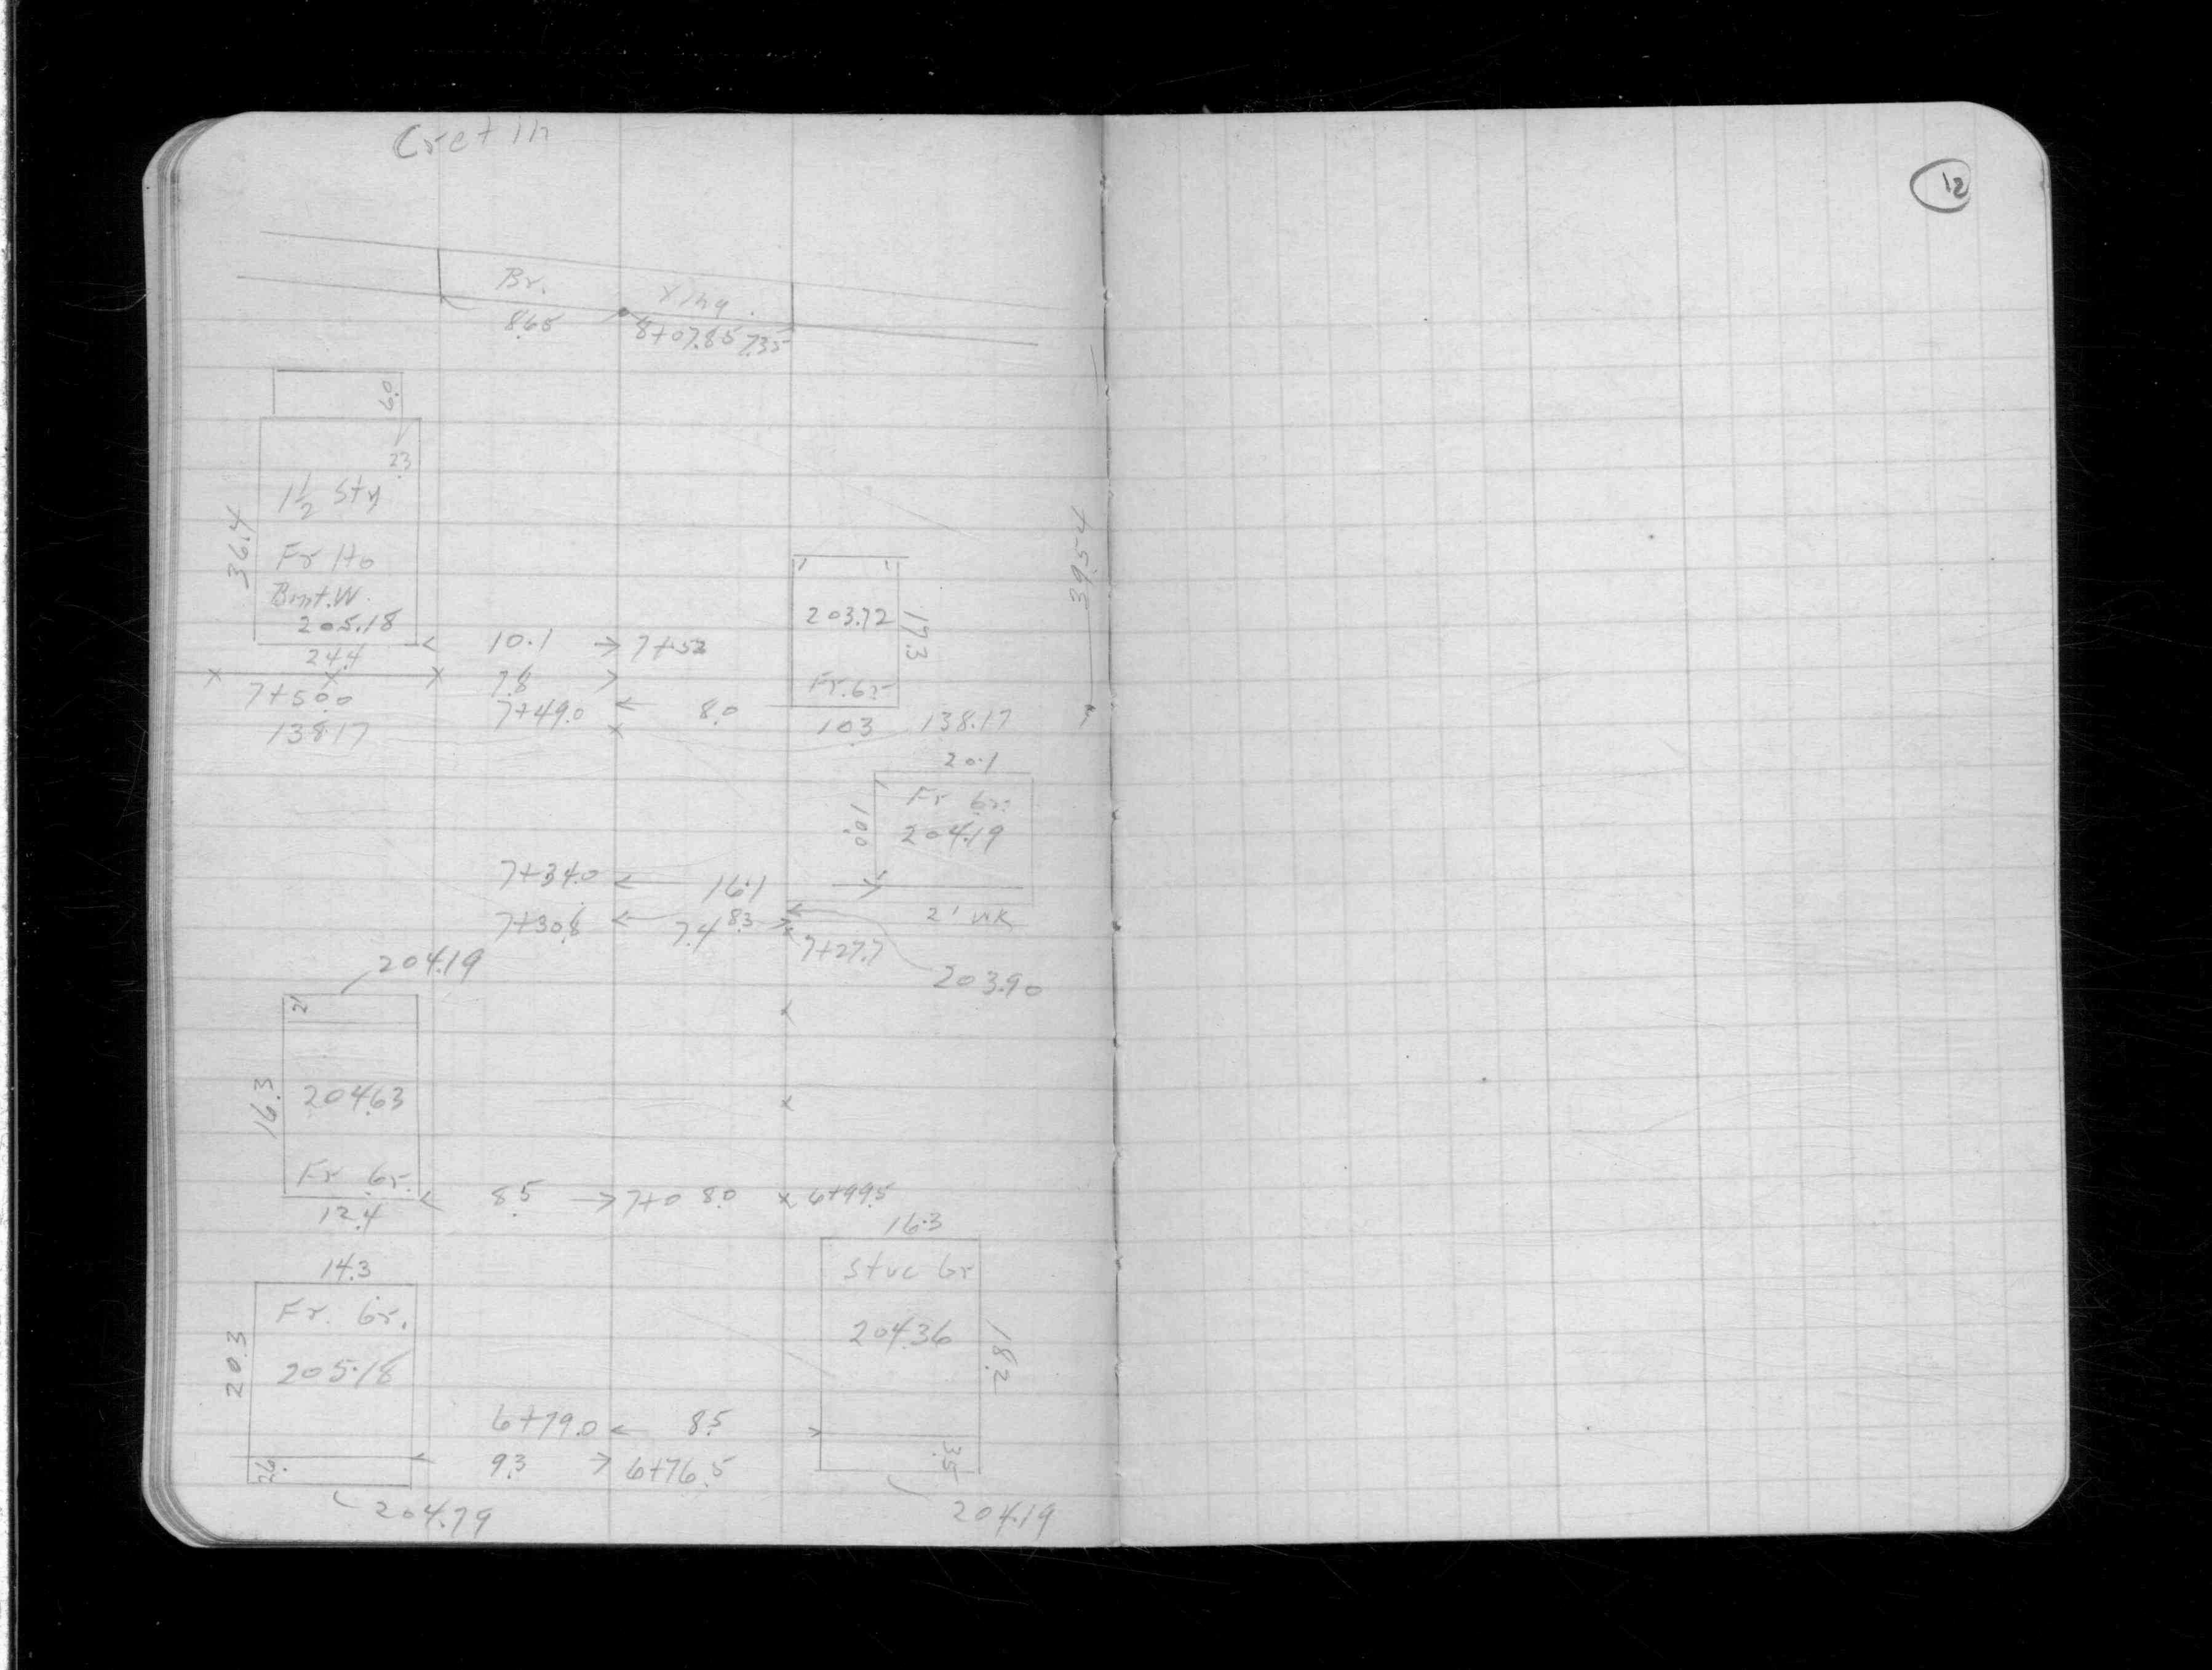 Cretin
12
Br. Xing.
8.65 8+07.85 7.35
6.0
2.3
1½ Sty
Fr Ho
Bsmt. W.
205.18
36.4
39.54
203.72
17.3
10.1 7+52
24.4
Fr. Gr
7+50.0 7.8
7+49.0 8.0
138.17 10.3 138.17
20.1
Fr Gr.
10.0 204.19
7+34.0 16.1
2' WK
7+30.8 7.4 8.3
7+27.7
204.19 203.90
2
16.3 204.63
Fr Gr.
8.5 7+0 8.0 6+99.5
12.4
16.3
14.3 Stuc Gr
Fr. Gr.
20.3 204.36 18.2
205.18
6+79.0 8.5
9.3 6+76.5 3.5
2.6
204.79 204.19